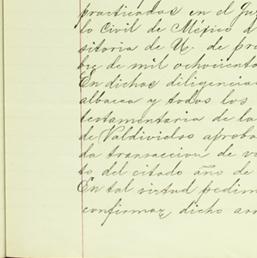 practicadas en el Juz
lo Civil de México d
sitoria de U. de pro
bre de mil ochocientos
En dichas diligencias
albacea y todos los
testamentaria de la
de Valdivielso aproba
da transaccion de ve
to del citado año de
En tal virtud pedim
confirmar, dicho arr